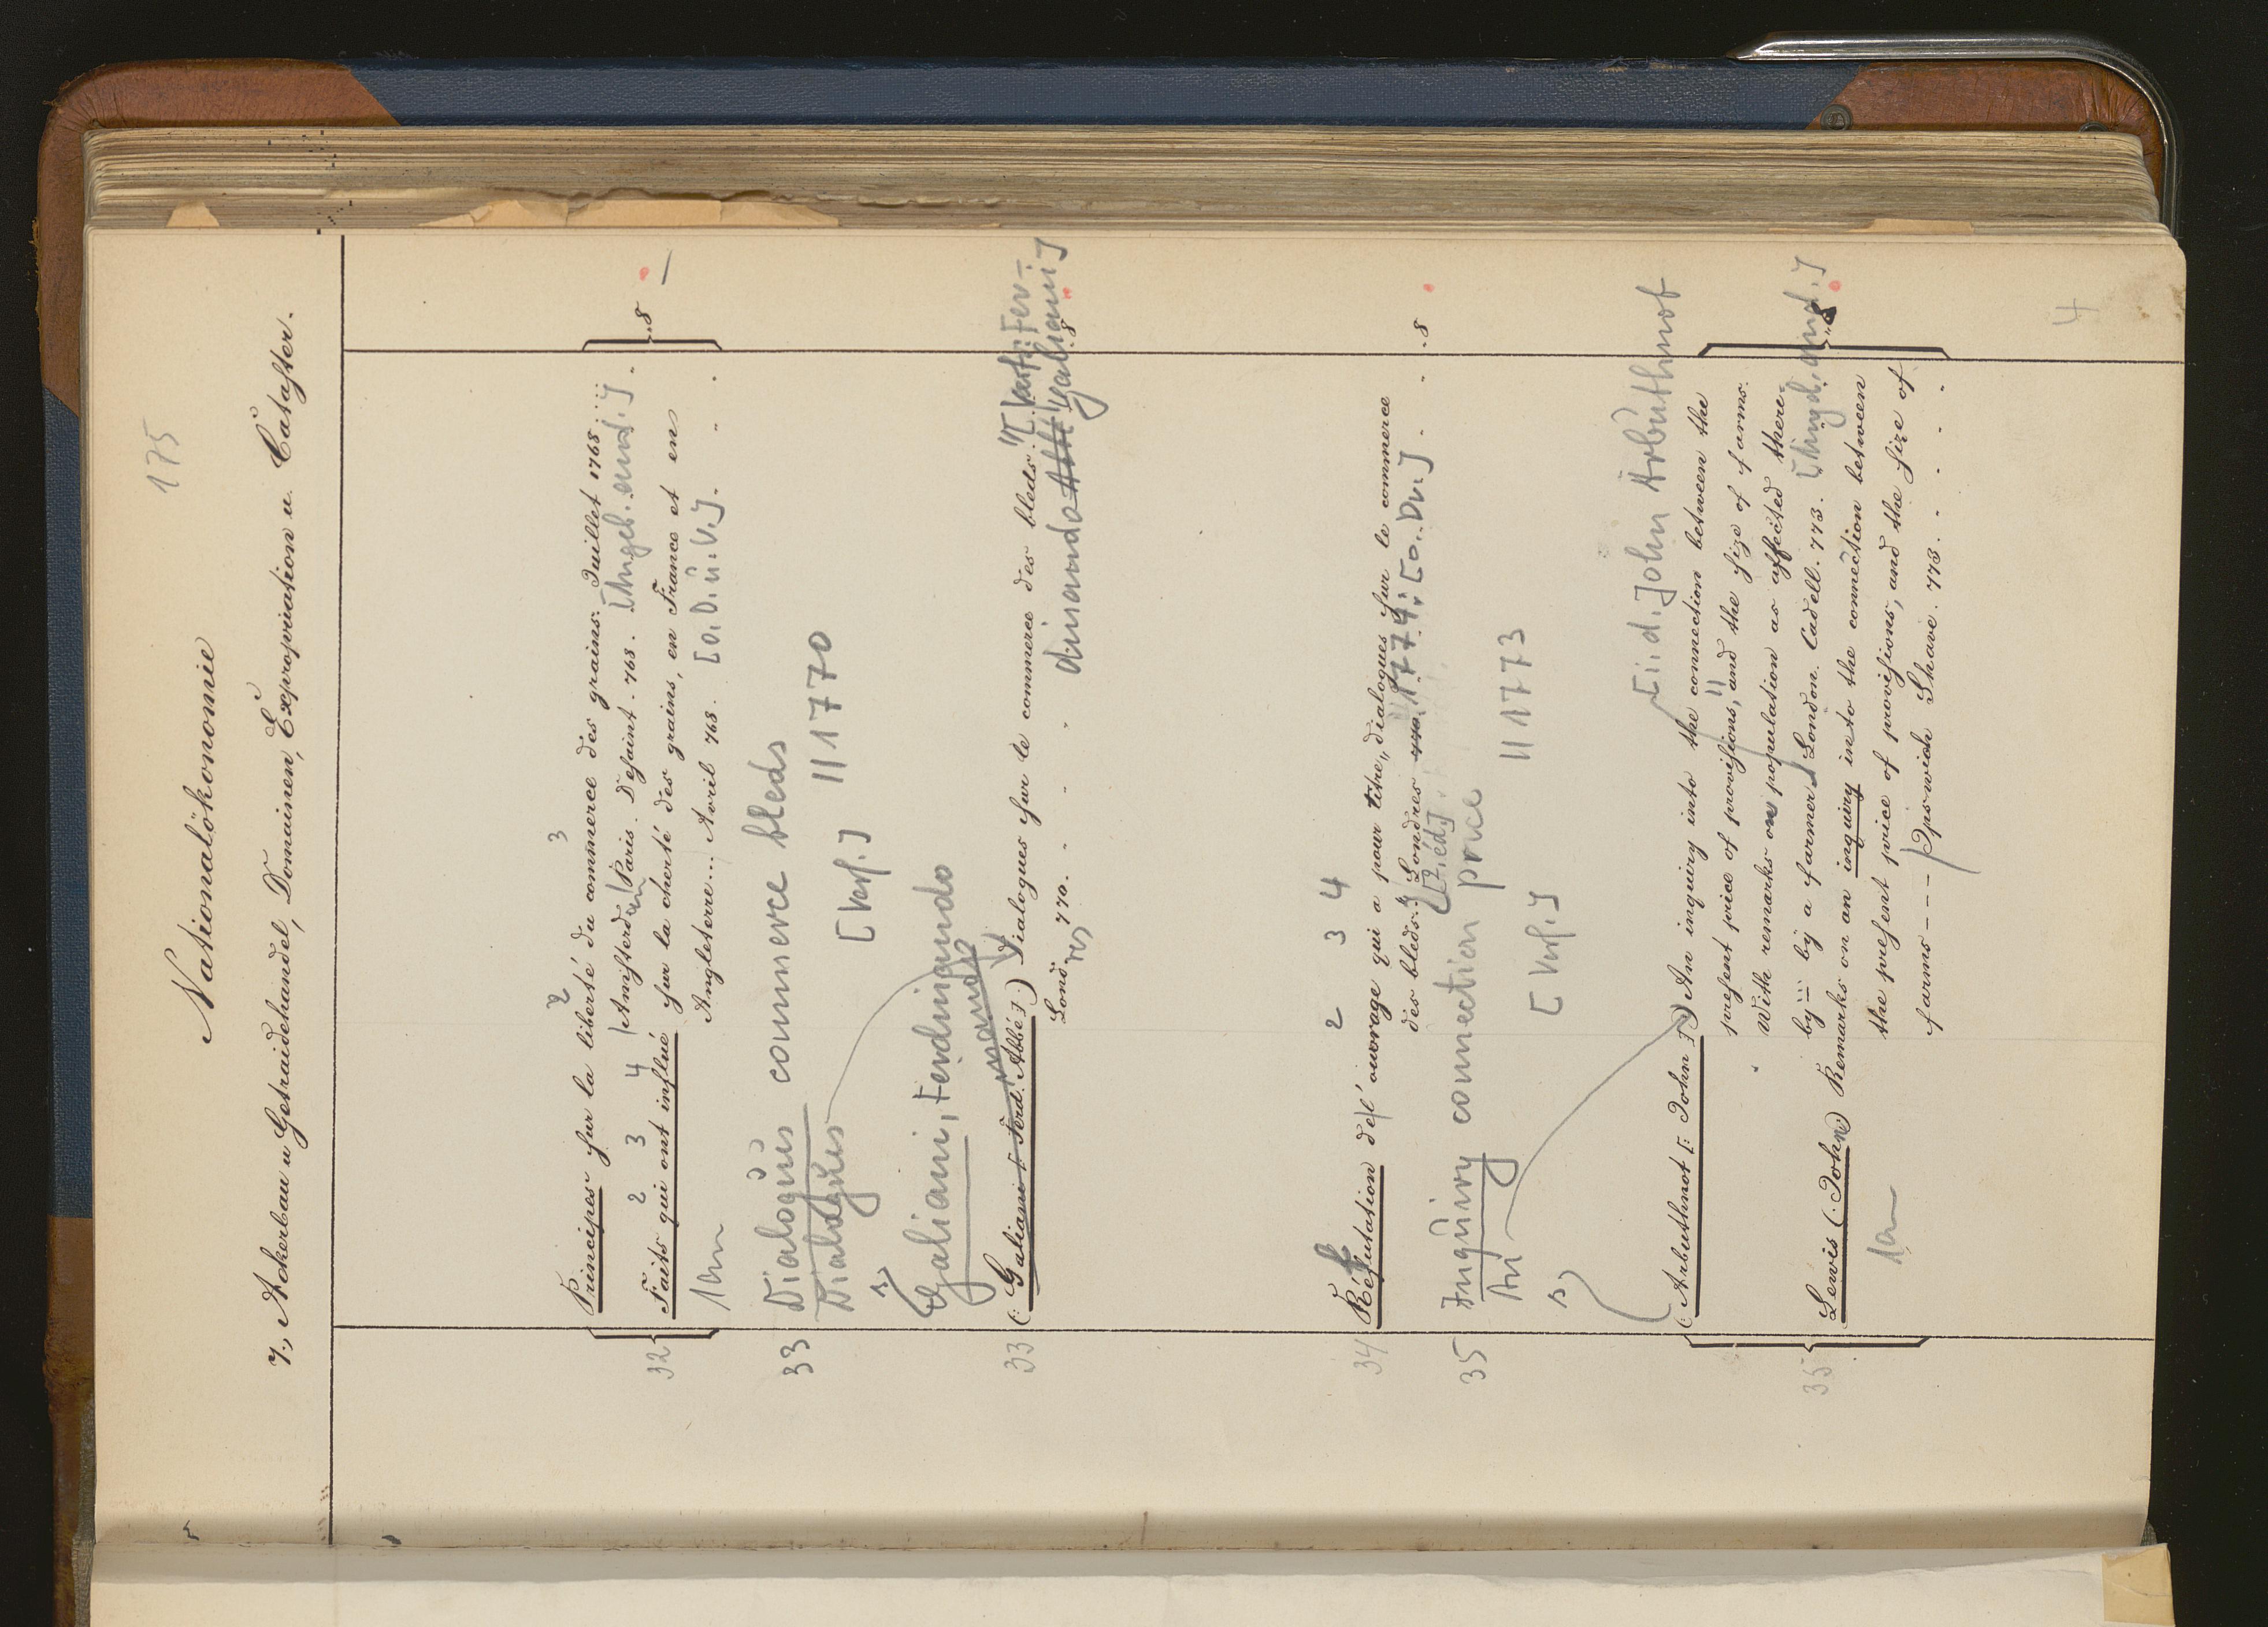 175
Nationalökonomie
7., Ackerbau u Getraidehandel, Domainen, Expropriation u. Cataster.
2 3
32 Principes sur la liberté du commerce des grains. Juillet 1768
Amsterdam Paris. Desaint. 768. [Angeb. and.]
2 3 4
Faits qui ont influé sur la cherté des grains, en France et en
Angleterre... Avril 768. [o. D. u. V.]
..8
33 Dialogues commerce bleds
Dialogues [Verf.] || 1770
Galiani, Ferdinando
33 (: Galiani [: Ferd. Abbé :] :) Dialogues sur le commerce des bleds. [Verf.: Fer-
Lond. res 770. dinando Abbé Galiani]
8
2 3 4
34 Réfutation de l'ouvrage qui a pour titre "dialogues sur le commerce
des bleds." Londres 770. 1774. [o. Dr.] ..8
[2. éd.]
35 Inquiry connection price
[Verf.] || 1773
[i. d. John Arbuthnot
35 (: Arbuthnot [: John :] :) An inquiry into the connection between the
present price of provisions, and the size of farms.
With remarks on population as affected there-
by ... by a farmer. London. Cadell. 773. [Angeb. and.]
8
Lewis (: John :) Remarks on an inquiry in to the connection between
the present price of provisions, and the size of
farms --- Ipswich Shave. 773.
4